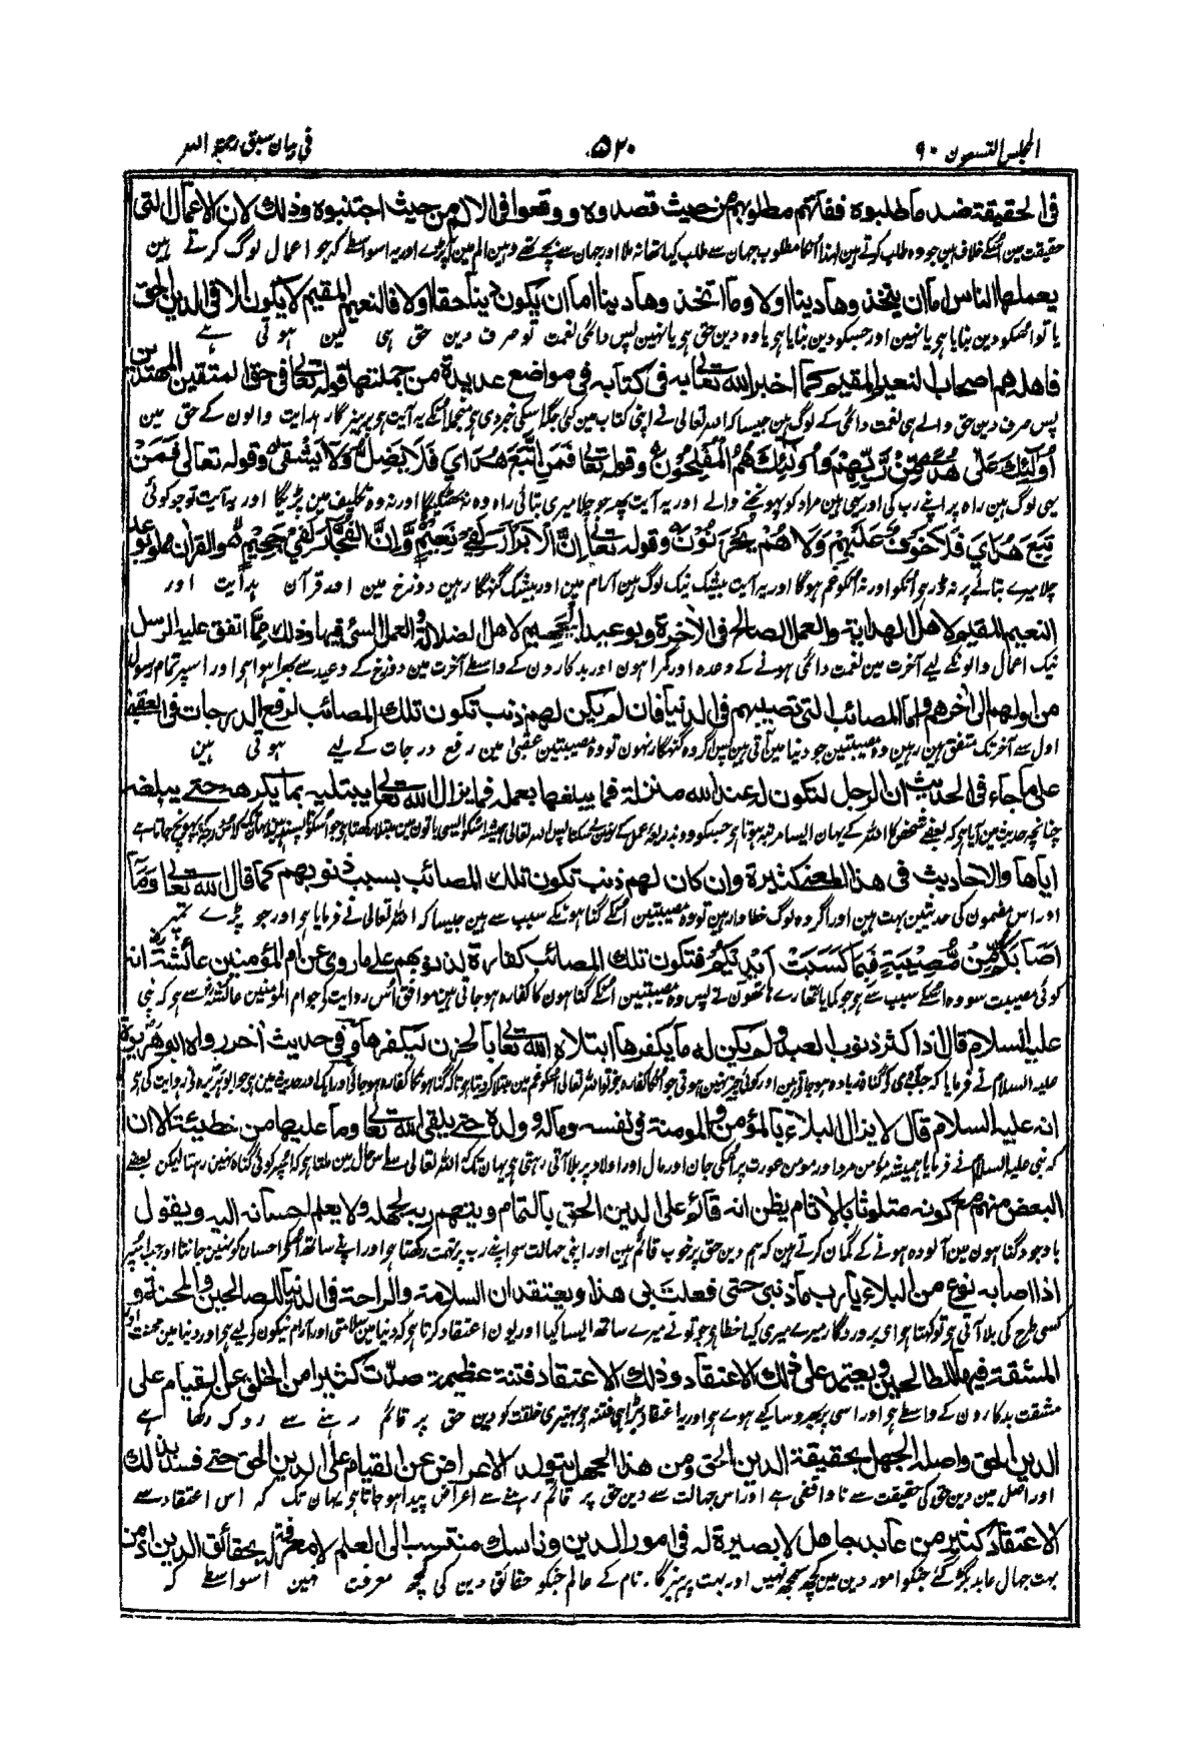 المجلس التسعون ۹۰
۵۲۰
فی بیان سبق رحمة الله
فی الحقیقة ضد ما طلبوه ففاتهم مطلوبهم من حیث قصدوه ووقعوا فی الالم من حیث اجتنبوه وذلك لان الاعمال التی
حقیقت مین اسکے خلاف ہین جو وہ طلب کرتے ہین لہذا انکا مطلوب جہان سے طلب کیا تھا نہ ملا اور جہان سے بچے تھے وہین الم مین آپڑے اور یہ اسواسطے کہ جو اعمال لوگ کرتے ہین
یعملها الناس اما ان یتخذوها دینا اولا وما اتخذوها دینا اما ان یکون دینا حقا اولا فالنعیم المقیم لا یکون الا فی الدین الحق
یا تو اسکو دین بنایا ہو یا نہین اور جسکو دین بنایا ہو یا وہ دین حق ہو یا نہین پس دائمی نعمت تو صرف دین حق ہی مین ہوتی ہے
فاهله هم اصحاب النعیم المقیم كما اخبر الله تعالی به فی كتابه فی مواضع عدیدة من جملتها قوله تعالی فی حق المتقین المهتدین
پس صرف دین حق والے ہی نعمت دائمی کے لوگ ہین جیسا کہ اللہ تعالی نے اپنی کتاب مین کئی جگہ اسکی خبر دی ہو منجملہ انکے یہ آیت ہو پرہیزگار ہدایت والون کے حق مین
اُولٰٓئِكَ عَلٰی هُدًی مِّنْ رَّبِّهِمْ وَاُولٰٓئِكَ هُمُ الْمُفْلِحُوْنَ وقوله تعالی فَمَنِ اتَّبَعَ هُدَایَ فَلَا یَضِلُّ وَلَا یَشْقٰی وقوله تعالی فَمَنْ
یہی لوگ ہین راہ پر اپنے رب کی اور یہی ہین مراد کو پہونچنے والے اور یہ آیت پھر جو چلا میری بتائی راہ وہ نہ بھٹکیگا اور نہ وہ تکلیف مین پڑیگا اور یہ آیت تو جو کوئی
تَبِعَ هُدَایَ فَلَا خَوْفٌ عَلَیْهِمْ وَلَا هُمْ یَحْزَنُوْنَ وقوله تعالی اِنَّ الْاَبْرَارَ لَفِیْ نَعِیْمٍ وَّاِنَّ الْفُجَّارَ لَفِیْ جَحِیْمٍ والقران مملو بوعد
چلا میرے بتائے پر نہ ڈر ہو انکو اور نہ انکو غم ہوگا اور یہ آیت بیشک نیک لوگ ہین آرام مین اور بیشک گنہگار ہین دوزخ مین اور قرآن ہدایت اور
النعیم المقیم لاهل الهدایة والعمل الصالح فی الآخرة وبوعید الجحیم لاهل الضلالة والعمل السیئ فیها وذلك مما اتفق علیه الرسل
نیک اعمال والونکے لیے آخرت مین نعمت دائمی ہونے کے وعدہ اور گمراہون اور بدکارون کے واسطے آخرت مین دوزخ کے وعید سے بھرا ہوا ہو اور اسپر تمام رسول
من اولهم الی آخرهم واما المصائب التی تصیبهم فی الدنیا فان لم یکن لهم ذنب تكون تلك المصائب لرفع الدرجات فی العقبی
اول سے آخر تک متفق ہین رہین وہ مصیبتین جو دنیا مین آتی ہین پس اگر وہ گنہگار نہون تو وہ مصیبتین عقبی مین رفع درجات کے لیے ہوتی ہین
علی ما جاء فی الحدیث ان الرجل لتكون له عند الله منزلة فما یبلغها بعمله فما یزال الله تعالی یبتلیه بما یكرهه حتی یبلغه
چنانچہ حدیث مین آیا ہو کہ بعضے شخص کا اللہ کے یہان ایسا مرتبہ ہوتا ہو جسکو وہ بذریعہ عمل کے نہین پہونچ سکتا پس اللہ تعالی ہمیشہ اسکو ایسی باتون مین مبتلا رکھتا ہو جو اسکو ناپسند ہین یہان تک کہ اس درجہ کو پہونچ جاتا ہے
ایاها والاحادیث فی هذا المعنی كثیرة وان كان لهم ذنب تكون تلك المصائب بسبب ذنوبهم كما قال الله تعالی وَمَا
اور اس مضمون کی حدیثین بہت ہین اور اگر وہ لوگ خطاوار ہین تو وہ مصیبتین انکے گناہونکے سبب سے ہین جیسا کہ اللہ تعالی نے فرمایا ہو اور جو پڑے تمپر
اَصَابَكُمْ مِّنْ مُّصِیْبَةٍ فَبِمَا كَسَبَتْ اَیْدِیْكُمْ فتكون تلك المصائب كفارة لذنوبهم علی ما روی عن ام المؤمنین عائشة انه
کوئی مصیبت سو وہ اسکے سبب سے ہو جو کمایا تمہارے ہاتھون نے پس وہ مصیبتین انکے گناہون کا کفارہ ہو جاتی ہین موافق اس روایت کی جو ام المؤمنین عائشہ سے ہو کہ نبی
علیه السلام قال اذا كثر ذنوب العبد ولم یكن له ما یكفرها ابتلاه الله تعالی بالحزن لیكفرها وفی حدیث آخر رواه ابو هریرة
علیہ السلام نے فرمایا کہ جبکہ آدمی کو گناہ زیادہ ہو جاتی ہین اور کوئی چیز نہین ہوتی جو انکا کفارہ ہو تو اللہ تعالی اسکو غم مین مبتلا کر دیتا ہو تاکہ گناہونکا کفارہ ہو جائی اور ایک اور حدیث مین ہی جو ابو ہریرہ نی روایت کی ہو
انه علیه السلام قال لا یزال البلاء بالمؤمن والمومنة فی نفسه وماله وولده حتی یلقی الله تعالی وما علیها من خطیئة الا ان
کہ نبی علیہ السلام نے فرمایا ہمیشہ مؤمن مرد اور مومن عورت پر اسکی جان اور مال اور اولاد پر بلا آتی رہتی ہو یہان تک کہ اللہ تعالی سے اس حال مین ملتا ہو کہ اسپر کوئی گناہ نہین رہتا لیکن بعضے
البعض منهم مع كونه متلوثا بالآثام یظن انه قائم علی الدین الحق بالتمام ویتهم ربه بجهله ولا یعلم احسانه الیه ویقول
باوجود گناہون مین آلودہ ہونے کے گمان کرتے ہین کہ ہم دین حق پر خوب قائم ہین اور اپنی جہالت سو اپنے رب پر تہمت رکھتا ہو اور اپنے ساتھ اسکو احسان کو نہین جانتا اور جب اسپر
اذا اصابه نوع من البلاء یا رب ما ذنبی حتی فعلت بی هذا ویعتقد ان السلامة والراحة فی الدنیا للصالحین والمحنة و
کسی طرح کی بلا آتی ہو تو کہتا ہو ای پروردگار میرے میری کیا خطا ہو جو تو نے میرے ساتھ ایسا کیا اور یون اعتقاد کرتا ہو کہ دنیا مین سلامتی اور آرام نیکون کو لیے ہو اور دنیا مین محنت اور
المشقة فیها للطالحین ویعتمد علی ذلك الاعتقاد وذلك الاعتقاد فتنة عظیمة صدت كثیرا من الخلق عن القیام علی
مشقت بدکارون کے واسطے ہو اور اسی پر بھروسا کیے ہوے ہو اور یہ اعتقاد بڑا ہی فتنہ ہو بہتیری خلقت کو دین حق پر قائم رہنے سے روک رکھا ہے
الدین الحق واصله الجهل بحقیقة الدین الحق ومن هذا الجهل یتولد الاعراض عن القیام علی الدین الحق حتی فسد بذلك
اور اصل مین دین حق کی حقیقت سے ناواقفی ہے اور اس جہالت سے دین حق پر قائم رہنے سے اعراض پیدا ہو جاتا ہو یہان تک کہ اس اعتقاد سے
الاعتقاد كثیر من عابد جاهل لا بصیرة له فی امور الدین وناسك منتسب الی العلم لا معرفة له بحقائق الدین اذ من
بہت جہال عابد بگڑ گئے جنکو امور دین مین کچھ سمجھ نہین اور بہت پرہیزگار نام کے عالم جنکو حقائق دین کی کچھ معرفت نہین اسواسطے کہ